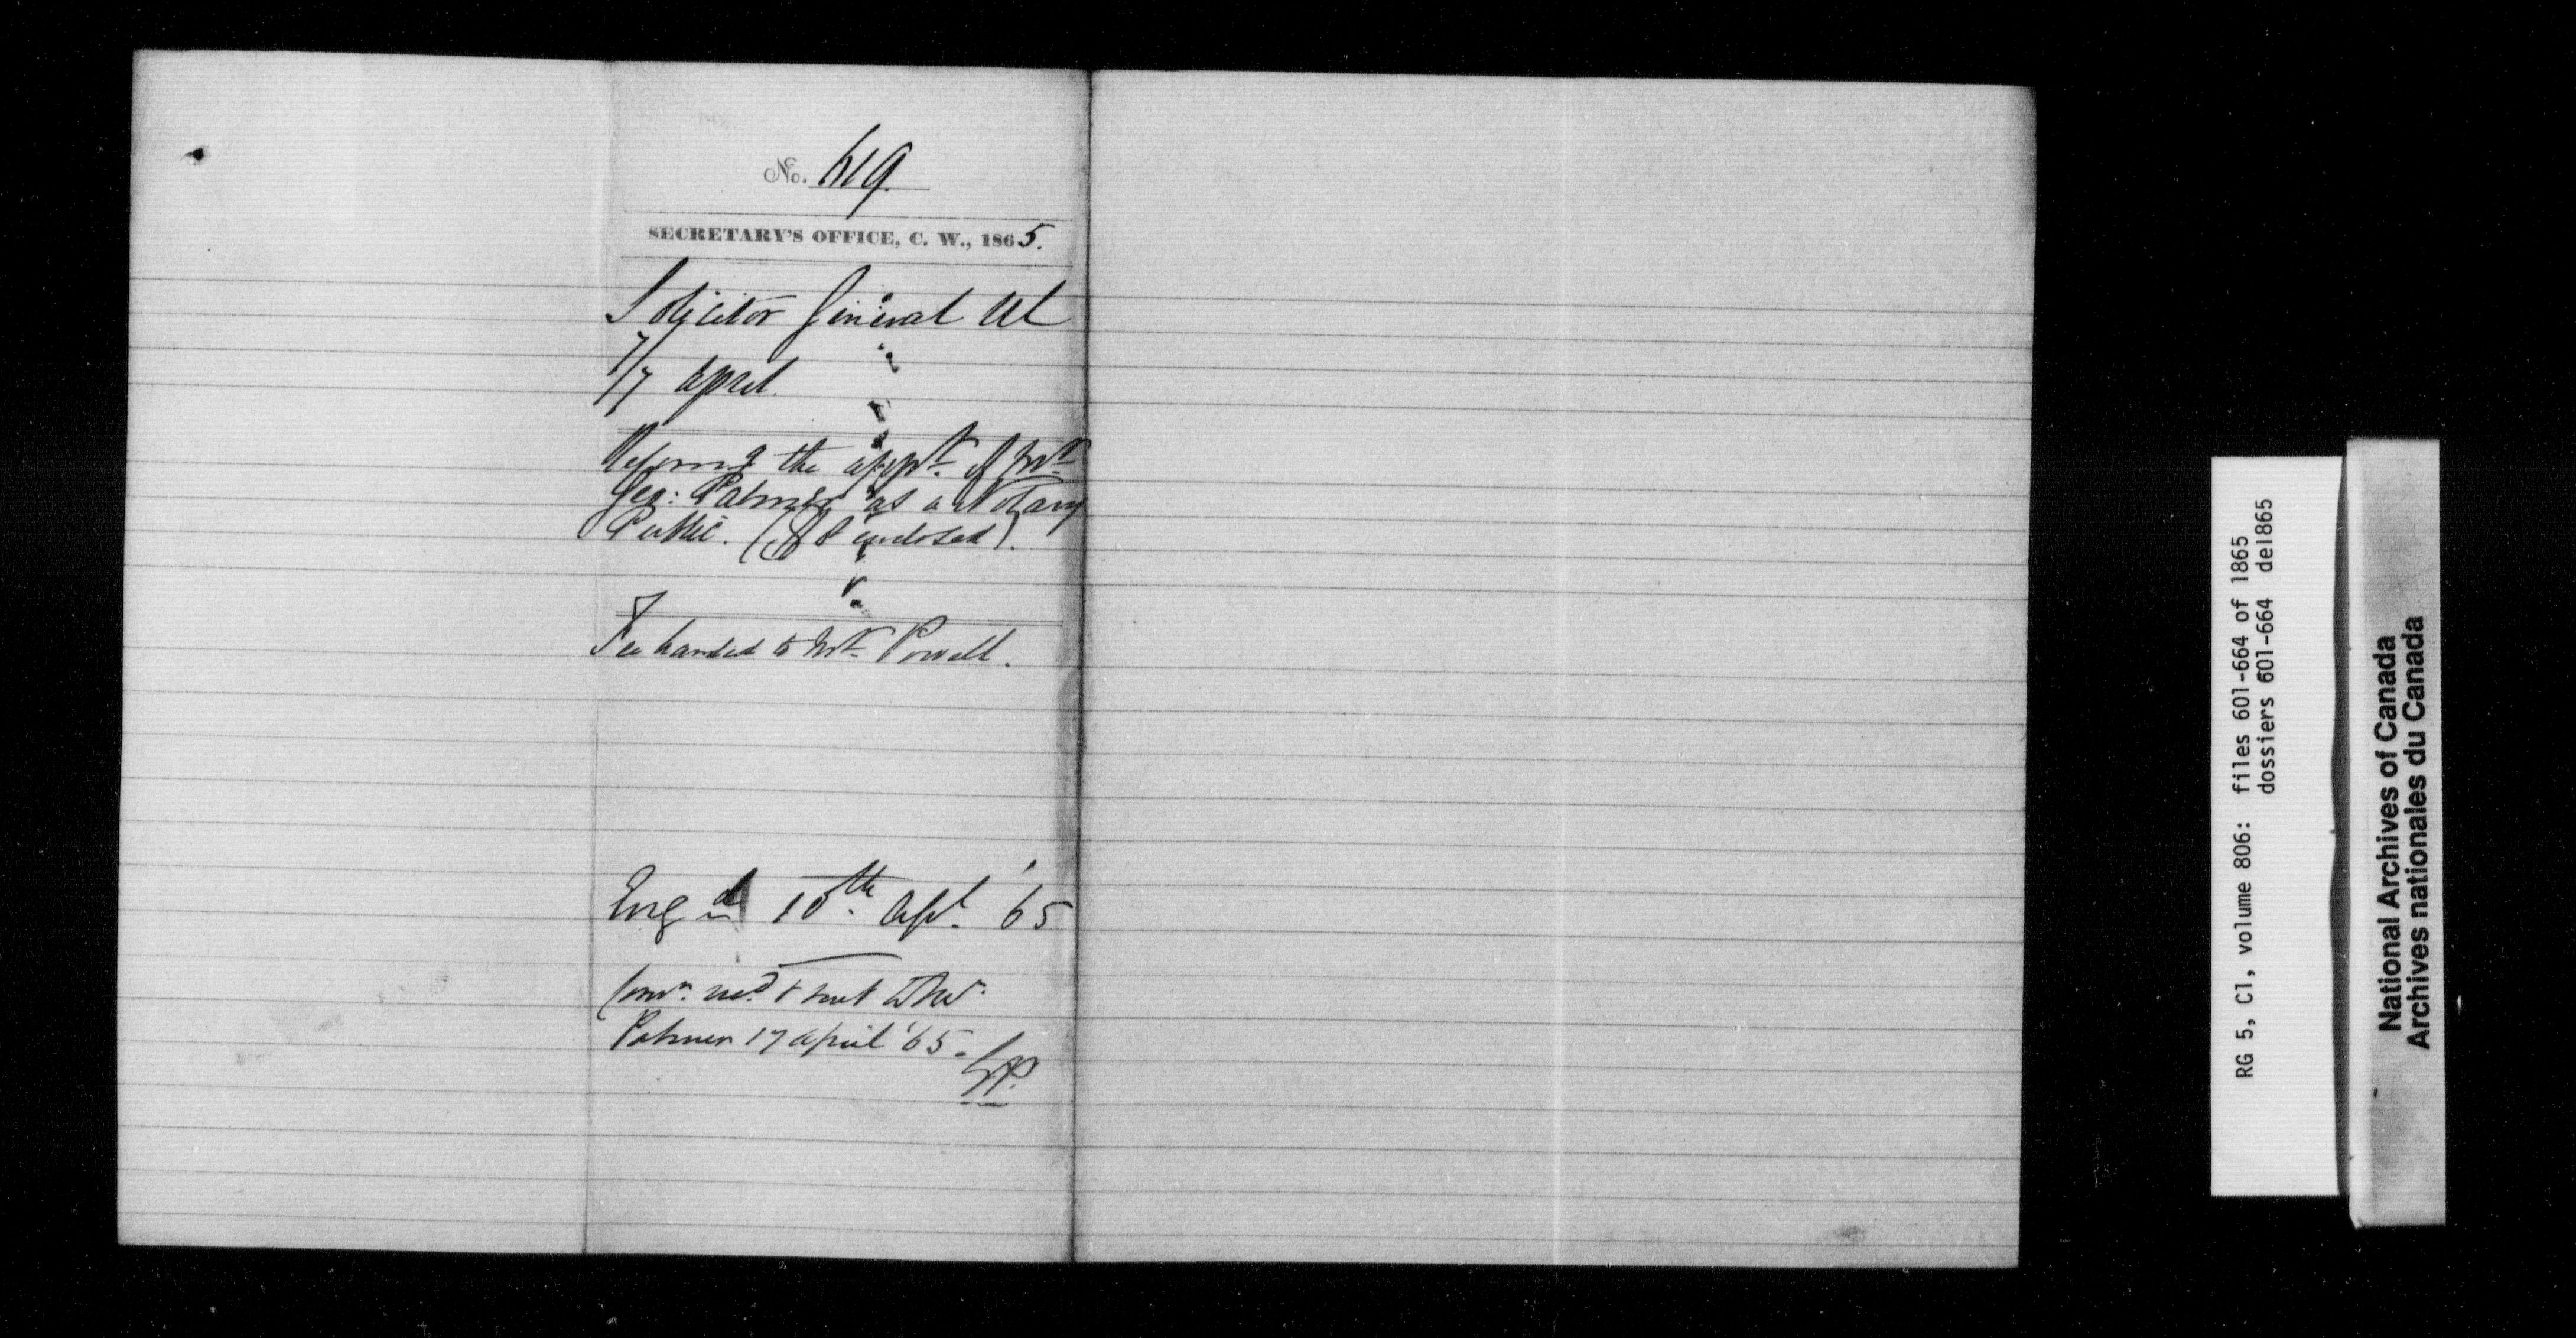 No. 619.
SECRETARY'S OFFICE, C. W., 1865.
Solicitor General
7/7 April.
the appt. of Mr.
Geo: Palmer as a Notary
Public. ( enclosed).
Fee handed to Mr. Powell.
Engd 10th Apl. '65
Comn. recd & sent to Mr.
Palmer 17 April '65.
RG 5, C1, volume 806: files 601-664 of 1865
dossiers 601-664 de1865
National Archives of Canada
Archives nationales du Canada